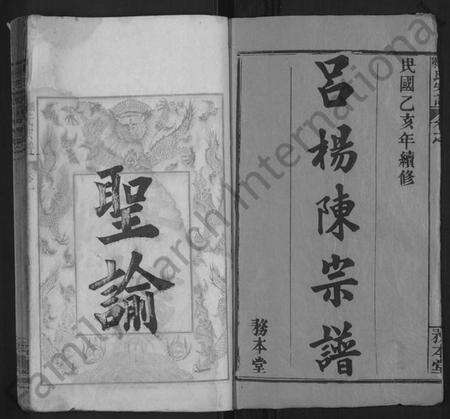 民國乙亥年續修
呂楊陳宗譜
務本堂
務本堂
聖諭
FamilySearch International